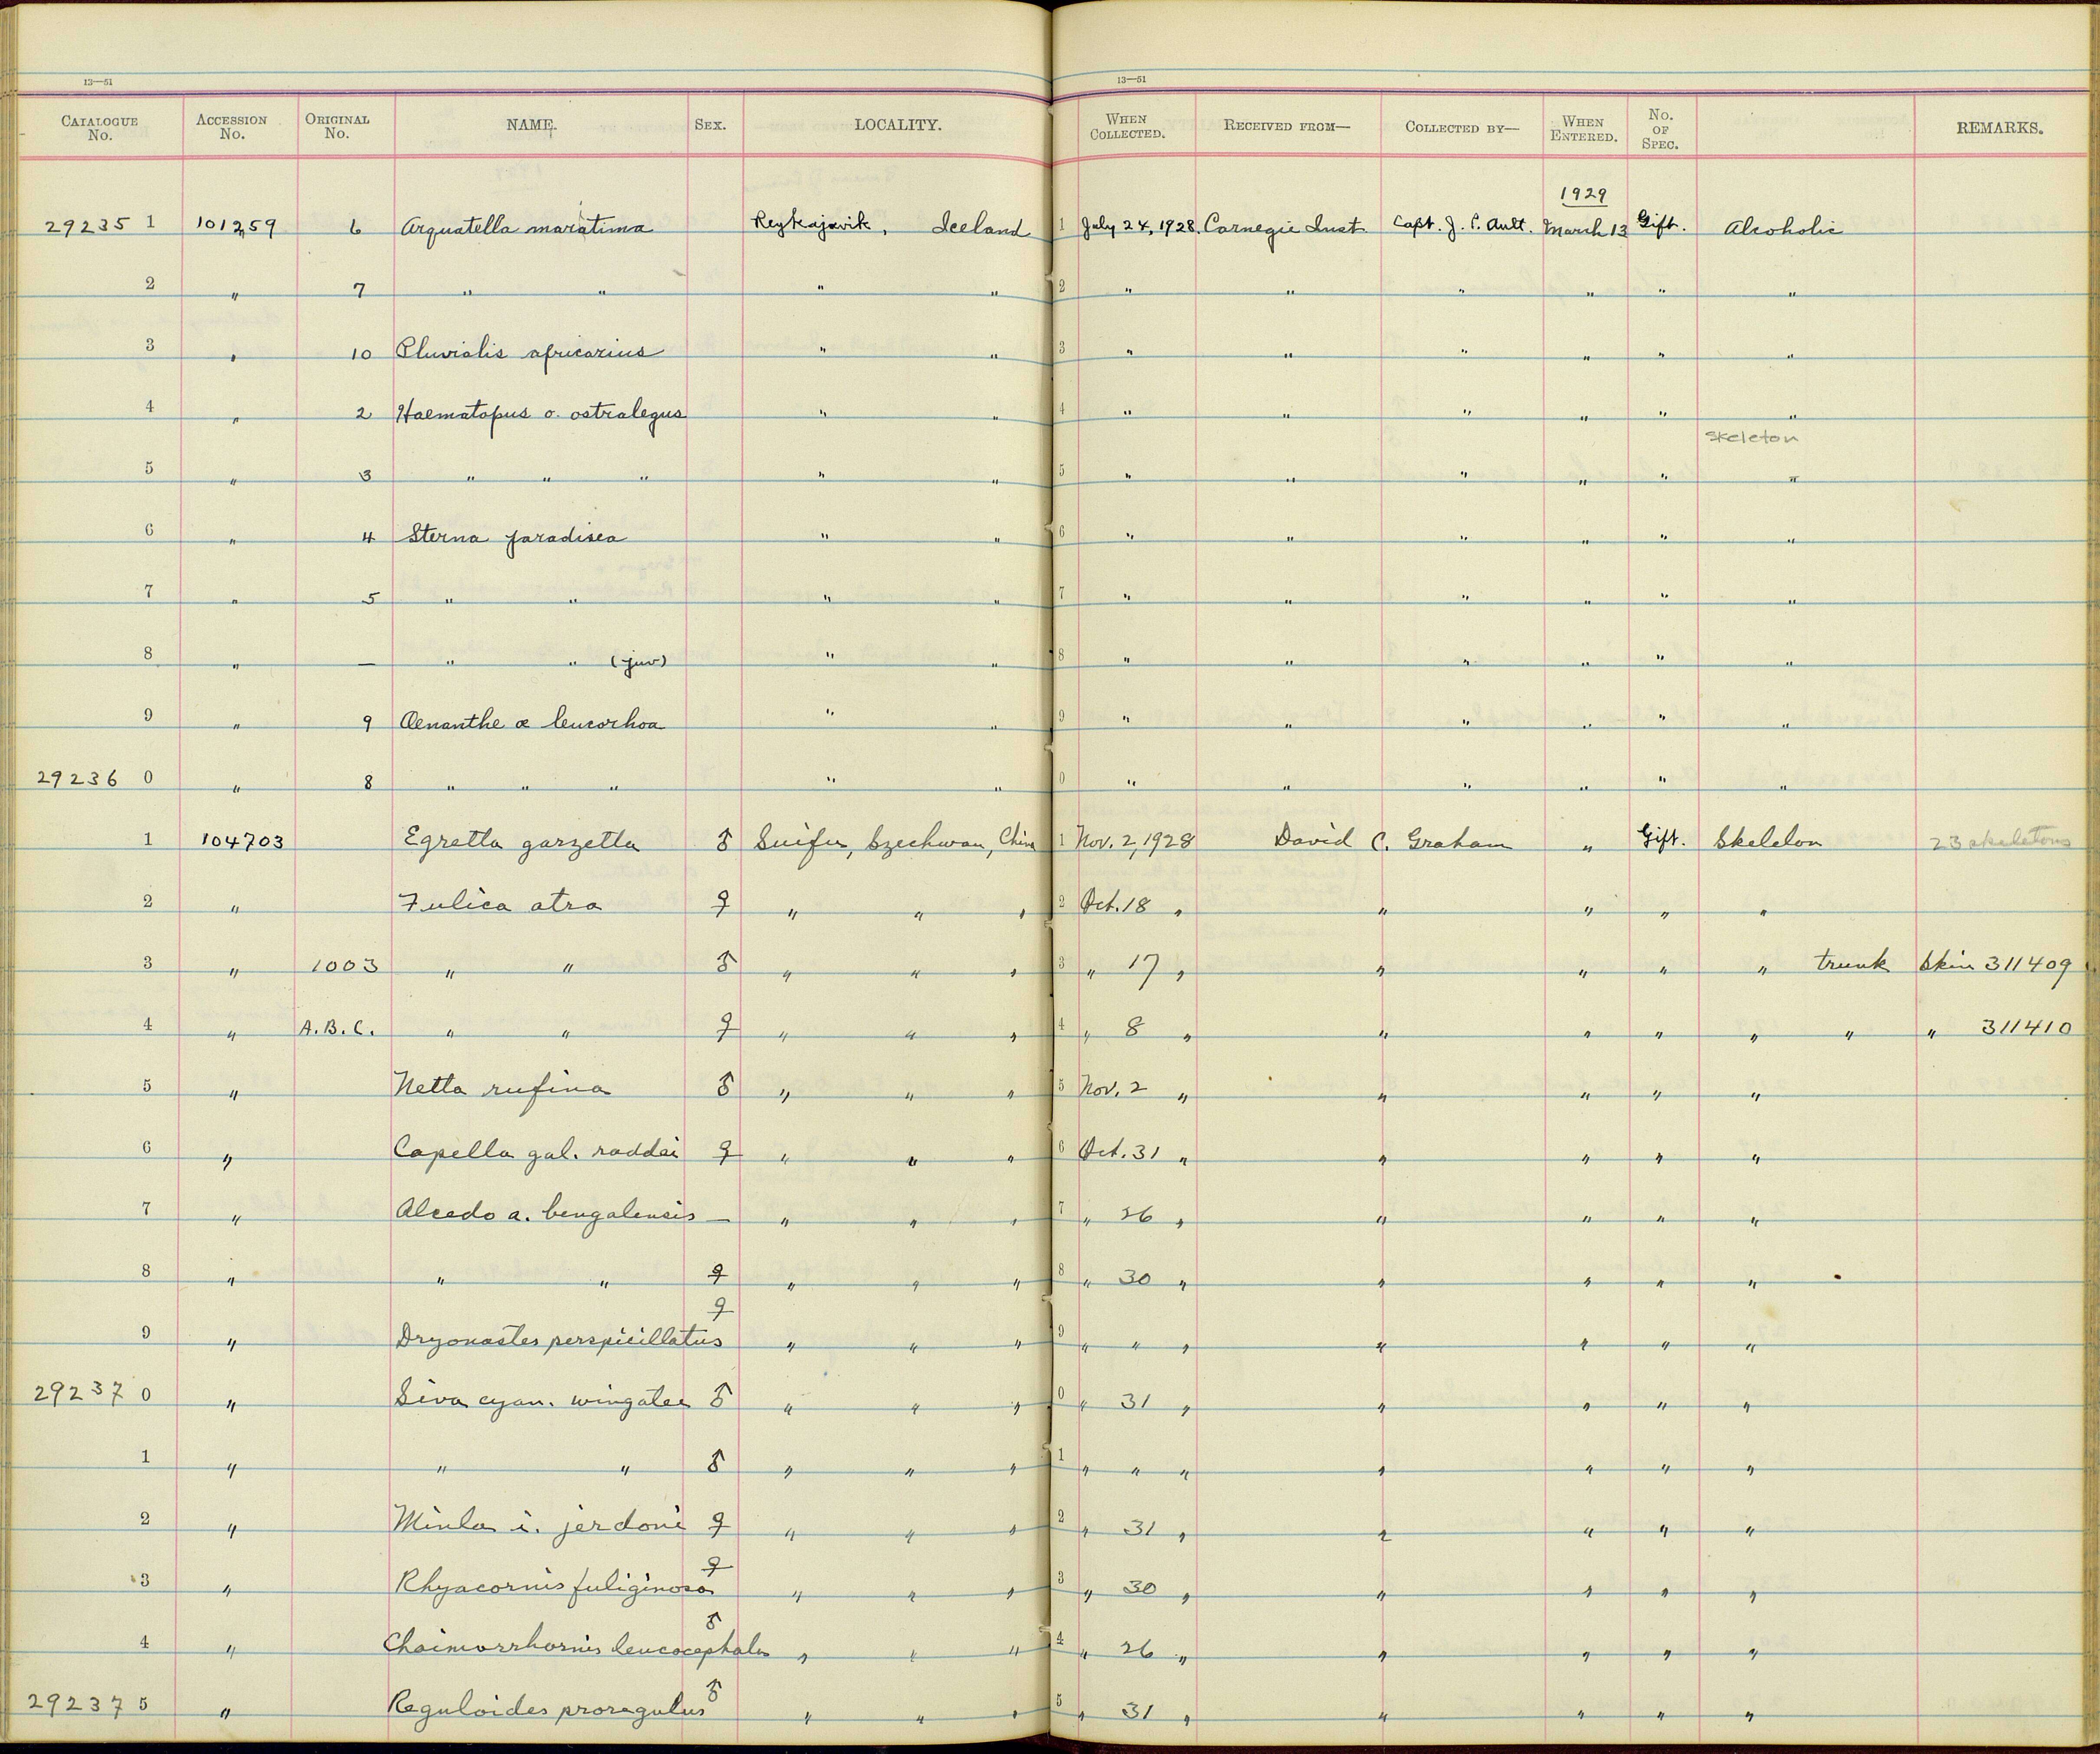 13—51 13—51
CATALOGUE No. ACCESSION No. ORIGINAL No. NAME. SEX. LOCALITY. WHEN COLLECTED. RECEIVED FROM— COLLECTED BY— WHEN ENTERED. No. OF SPEC. REMARKS.
1929
29235 1 101259 6 Arquatella maratima Reykajavik, Iceland 1 July 24, 1928. Carnegie Inst. Capt. J. P. Ault. March 13 Gift. Alcoholic
2 " 7 " " " " 2 " " " " " "
3 " 10 Pluvialis apricarius " " 3 " " " " " "
4 " 2 Haematopus o. ostralegus " " 4 " " " " " "
skeleton
5 " 3 " " " " " 5 " " " " " "
6 " 4 Sterna paradisea " " 6 " " " " " "
7 " 5 " " " " 7 " " " " " "
8 " — " " (juv) " " 8 " " " " " "
9 " 9 Oenanthe œ leucorhoa " " 9 " " " " " "
29236 0 " 8 " " " " " 0 " " " " " "
1 104703 Egretta garzetta ♂ Suifu, Szechwan, China 1 Nov. 2, 1928 David C. Graham " Gift. Skeleton 23 skeletons
2 " Fulica atra ♀ " " " 2 Oct. 18 " " " " "
3 " 1003 " " ♂ " " " 3 " 17 " " " " " trunk Skin 311409
4 " A.B.C. " " ♀ " " " 4 " 8 " " " " " " " 311410
5 " Netta rufina ♂ " " " 5 Nov. 2 " " " " "
6 " Capella gal. raddei ♀ " " " 6 Oct. 31 " " " " "
7 " Alcedo a. bengalensis — " " " 7 " 26 " " " " "
8 " " " ♀ " " " 8 " 30 " " " " "
9 " Dryonastes perspicillatus ♀ " " " 9 " " " " " " "
29237 0 " Siva cyan. wingatei ♂ " " " 0 " 31 " " " " "
1 " " " ♂ " " " 1 " " " " " " "
2 " Minla i. jerdoni ♀ " " " 2 " 31 " " " " "
3 " Rhyacornis fuliginosa ♀ " " " 3 " 30 " " " " "
4 " Chaimorrhornis leucocephalus ♂ " " " 4 " 26 " " " " "
29237 5 " Reguloides proregulus ♂ " " " 5 " 31 " " " " "